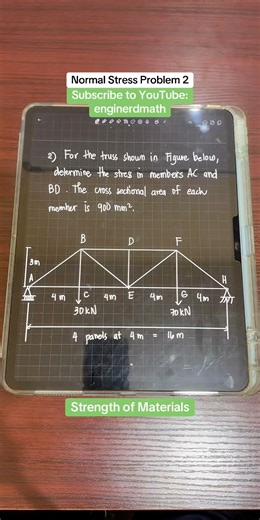 Normal Stress Problem 2
Subscribe to YouTube:
enginerdmath
2) For the truss shown in Figure below,
determine the stress in members AC and
BD. The cross sectional area of each
member is 900 mm².
B D F
3m
A H
4m C 4m E 4m G 4m
30kN 70kN
4 panels at 4m = 16m
Strength of Materials